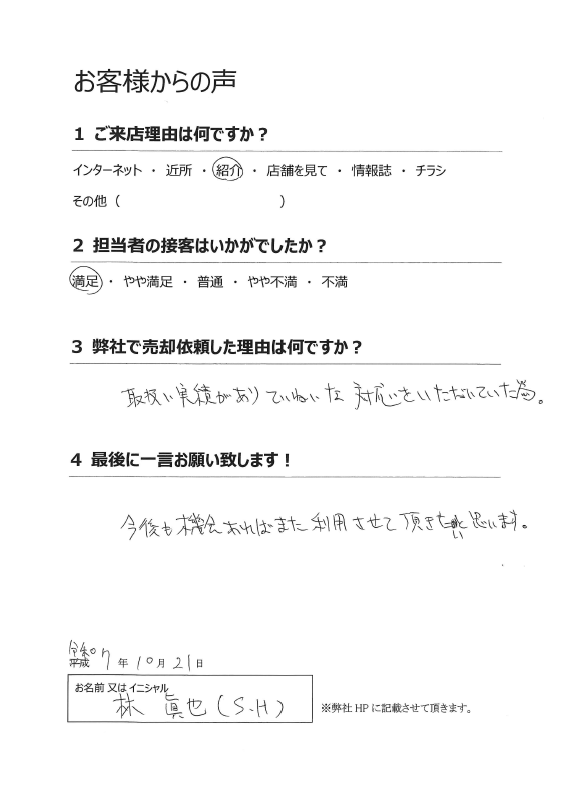 お客様からの声
1 ご来店理由は何ですか？
インターネット ・ 近所 ・ 紹介 ・ 店舗を見て ・ 情報誌 ・ チラシ
その他（　　　　　　　　　　　）
2 担当者の接客はいかがでしたか？
満足 ・ やや満足 ・ 普通 ・ やや不満 ・ 不満
3 弊社で売却依頼した理由は何ですか？
取扱い実績がありていねいな対応をいただいていた為。
4 最後に一言お願い致します！
今後も機会あればまた利用させて頂きたいと思います。
令和
平成 7 年 10 月 21 日
お名前 又は イニシャル
林 眞也（S.H）
※弊社 HP に記載させて頂きます。